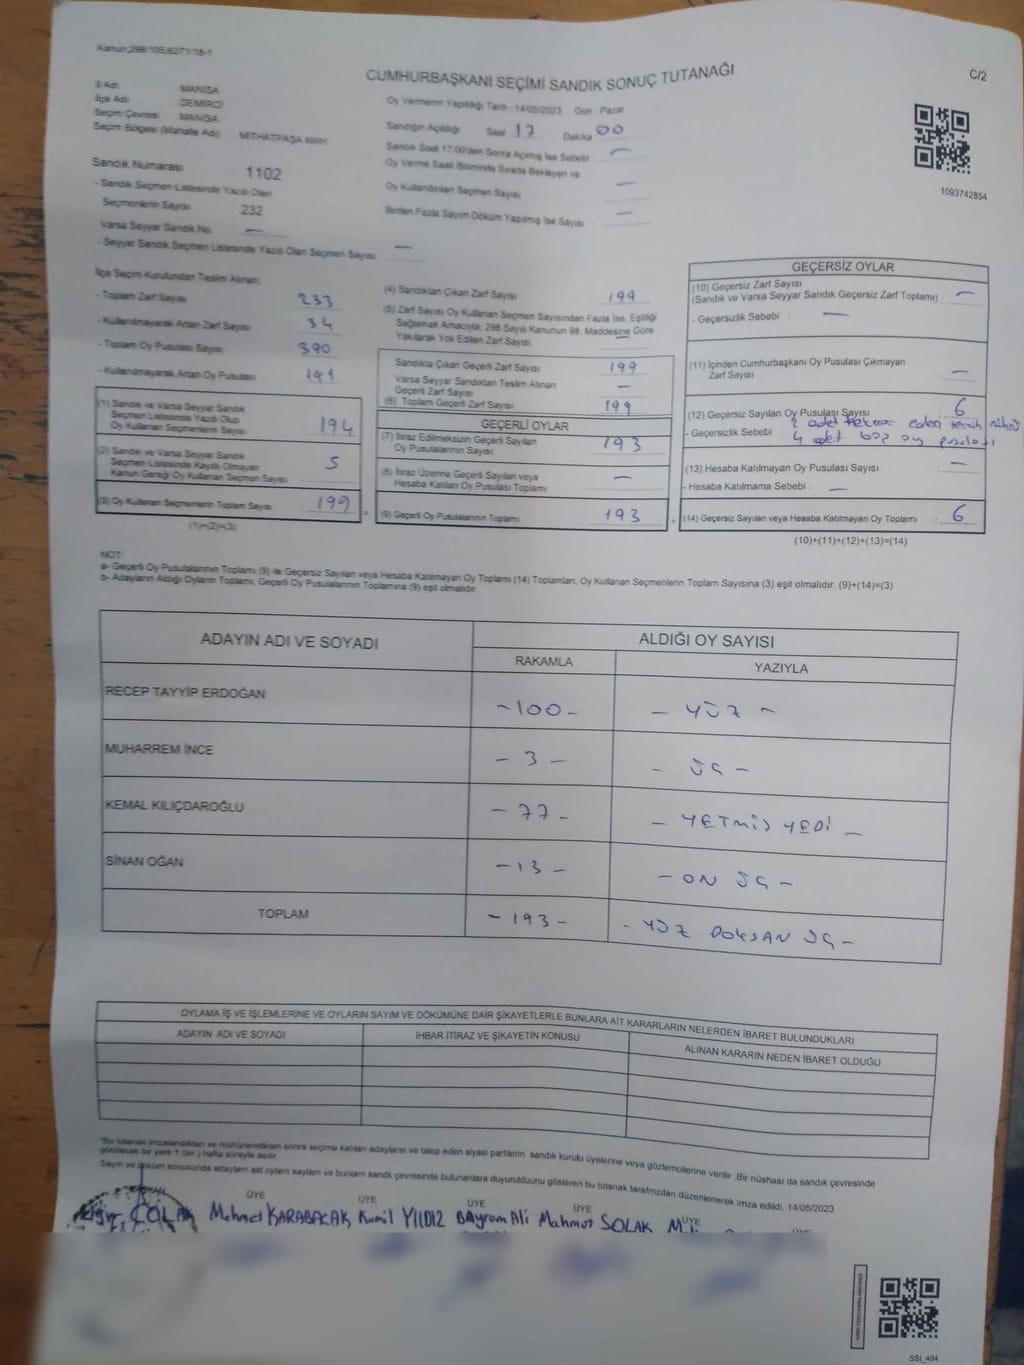 Kanun;298/105;6271/18-1
CUMHURBAŞKANI SEÇİMİ SANDIK SONUÇ TUTANAĞI
C/2
İl Adı: MANİSA
İlçe Adı: DEMİRCİ
Seçim Çevresi MANİSA
Seçim Bölgesi (Mahalle Adı) MİTHATPAŞA MAH.
Sandık Numarası 1102
- Sandık Seçmen Listesinde Yazılı Olan
Seçmenlerin Sayısı 232
Varsa Seyyar Sandık No —
- Seyyar Sandık Seçmen Listesinde Yazılı Olan Seçmen Sayısı —
Oy Vermenin Yapıldığı Tarih : 14/05/2023 Gün : Pazar
Sandığın Açıldığı Saat 17 Dakika 00
Sandık Saat 17:00'den Sonra Açılmış İse Sebebi —
Oy Verme Saati Bitiminde Sırada Bekleyen ve
Oy Kullandırılan Seçmen Sayısı —
Birden Fazla Sayım Döküm Yapılmış İse Sayısı : —
1093742854
İlçe Seçim Kurulundan Teslim Alınan;
- Toplam Zarf Sayısı 233
- Kullanılmayarak Artan Zarf Sayısı 34
- Toplam Oy Pusulası Sayısı 390
- Kullanılmayarak Artan Oy Pusulası 191
(1) Sandık ve Varsa Seyyar Sandık
Seçmen Listesinde Yazılı Olup
Oy Kullanan Seçmenlerin Sayısı 194
(2) Sandık ve Varsa Seyyar Sandık
Seçmen Listesinde Kayıtlı Olmayan
Kanun Gereği Oy Kullanan Seçmen Sayısı 5
(3) Oy Kullanan Seçmenlerin Toplam Sayısı 199
(1)+(2)=(3)
(4) Sandıktan Çıkan Zarf Sayısı 199
(5) Zarf Sayısı Oy Kullanan Seçmen Sayısından Fazla İse, Eşitliği
Sağlamak Amacıyla; 298 Sayılı Kanunun 98. Maddesine Göre
Yakılarak Yok Edilen Zarf Sayısı —
Sandıkta Çıkan Geçerli Zarf Sayısı 199
Varsa Seyyar Sandıktan Teslim Alınan
Geçerli Zarf Sayısı —
(6) Toplam Geçerli Zarf Sayısı 199
GEÇERLİ OYLAR
(7) İtiraz Edilmeksizin Geçerli Sayılan
Oy Pusulalarının Sayısı 193
(8) İtiraz Üzerine Geçerli Sayılan veya
Hesaba Katılan Oy Pusulası Toplamı —
(9) Geçerli Oy Pusulalarının Toplamı 193
GEÇERSİZ OYLAR
(10) Geçersiz Zarf Sayısı
(Sandık ve Varsa Seyyar Sandık Geçersiz Zarf Toplamı) : —
- Geçersizlik Sebebi : —
(11) İçinden Cumhurbaşkanı Oy Pusulası Çıkmayan
Zarf Sayısı —
(12) Geçersiz Sayılan Oy Pusulası Sayısı 6
2 adet eden tercih
- Geçersizlik Sebebi 4 adet boş oy pusulası
(13) Hesaba Katılmayan Oy Pusulası Sayısı —
- Hesaba Katılmama Sebebi : —
(14) Geçersiz Sayılan veya Hesaba Katılmayan Oy Toplamı : 6
(10)+(11)+(12)+(13)=(14)
NOT:
a- Geçerli Oy Pusulalarının Toplamı (9) ile Geçersiz Sayılan veya Hesaba Katılmayan Oy Toplamı (14) Toplamları, Oy Kullanan Seçmenlerin Toplam Sayısına (3) eşit olmalıdır. (9)+(14)=(3)
b- Adayların Aldığı Oyların Toplamı, Geçerli Oy Pusulalarının Toplamına (9) eşit olmalıdır.
ADAYIN ADI VE SOYADI ALDIĞI OY SAYISI
RAKAMLA YAZIYLA
RECEP TAYYİP ERDOĞAN -100- - YÜZ -
MUHARREM İNCE - 3 - - ÜÇ -
KEMAL KILIÇDAROĞLU - 77 - - YETMİŞ YEDİ -
SİNAN OĞAN - 13 - - ON ÜÇ -
TOPLAM - 193 - - YÜZ DOKSAN ÜÇ -
OYLAMA İŞ VE İŞLEMLERİNE VE OYLARIN SAYIM VE DÖKÜMÜNE DAİR ŞİKAYETLERLE BUNLARA AİT KARARLARIN NELERDEN İBARET BULUNDUKLARI
ADAYIN ADI VE SOYADI İHBAR İTİRAZ VE ŞİKAYETİN KONUSU ALINAN KARARIN NEDEN İBARET OLDUĞU
*Bu tutanak imzalandıktan ve mühürlendikten sonra seçime katılan adayların ve talep eden siyasi partilerin sandık kurulu üyelerine veya gözlemcilerine verilir .Bir nüshası da sandık çevresinde
görülecek bir yere 1 (bir ) hafta süreyle asılır.
Sayım ve döküm sonucunda adayların ait oyların sayıları ve bunların sandık çevresinde bulunanlara duyurulduunu gösteren bu tutanak tarafımızdan düzenlenerek imza edildi. 14/05/2023
ÜYE ÜYE ÜYE ÜYE ÜYE
ÇOLAK Mehmet KARABACAK Kamil YILDIZ Bayram Ali Mahmut SOLAK
SSİ_404